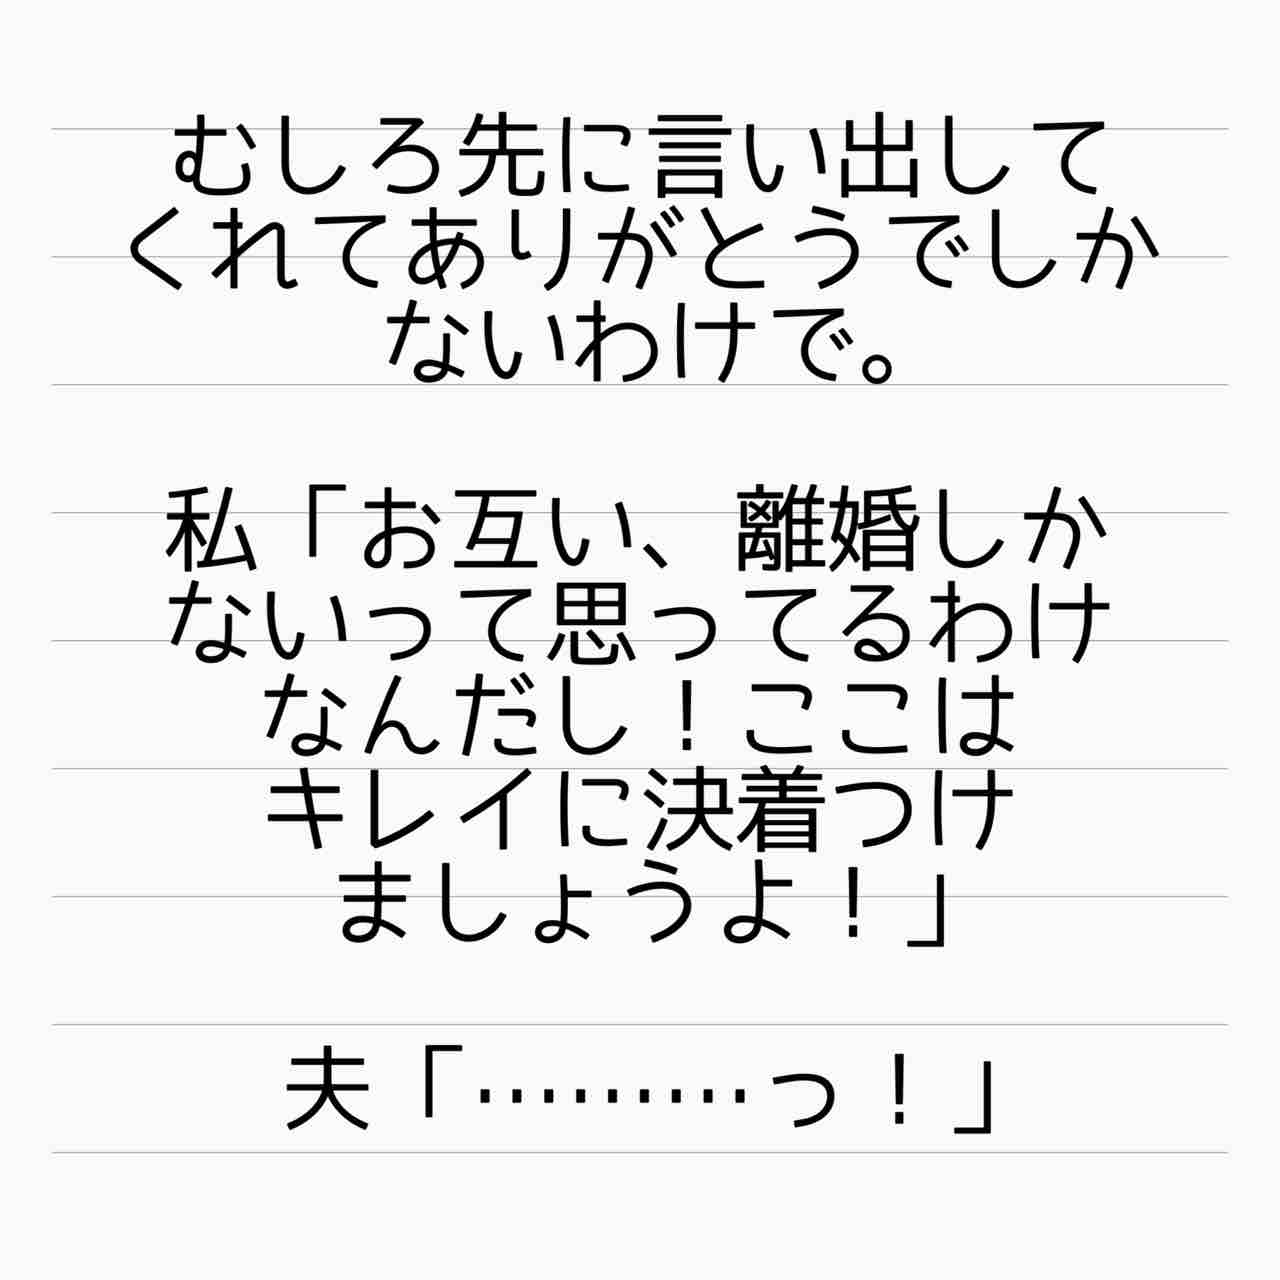 むしろ先に言い出して
くれてありがとうでしか
ないわけで。
私「お互い、離婚しか
ないって思ってるわけ
なんだし！ここは
キレイに決着つけ
ましょうよ！」
夫「………っ！」